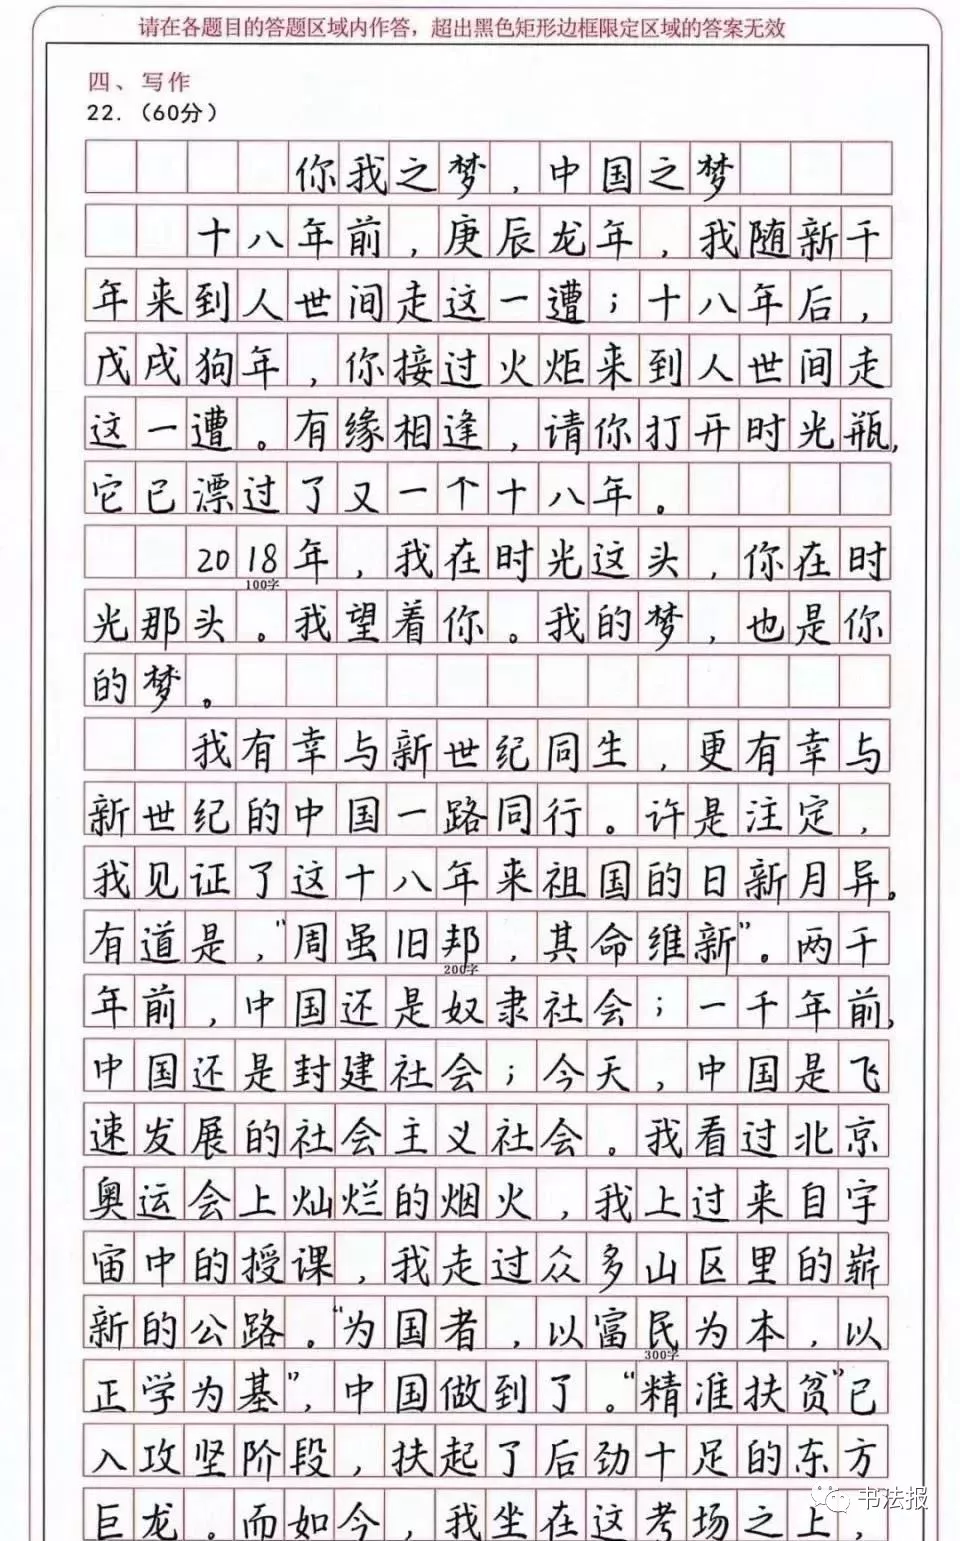 请在各题目的答题区域内作答，超出黑色矩形边框限定区域的答案无效
四、写作
22.（60分）
你我之梦，中国之梦
十八年前，庚辰龙年，我随新千
年来到人世间走这一遭；十八年后，
戊戌狗年，你接过火炬来到人世间走
这一遭。有缘相逢，请你打开时光瓶，
它已漂过了又一个十八年。
2018年，我在时光这头，你在时
100字
光那头。我望着你。我的梦，也是你
的梦。
我有幸与新世纪同生，更有幸与
新世纪的中国一路同行。许是注定，
我见证了这十八年来祖国的日新月异。
有道是，“周虽旧邦，其命维新”。两千
200字
年前，中国还是奴隶社会；一千年前，
中国还是封建社会；今天，中国是飞
速发展的社会主义社会。我看过北京
奥运会上灿烂的烟火，我上过来自宇
宙中的授课，我走过众多山区里的崭
新的公路。“为国者，以富民为本，以
300字
正学为基”，中国做到了。“精准扶贫”已
入攻坚阶段，扶起了后劲十足的东方
巨龙。而如今，我坐在这考场之上，
书法报